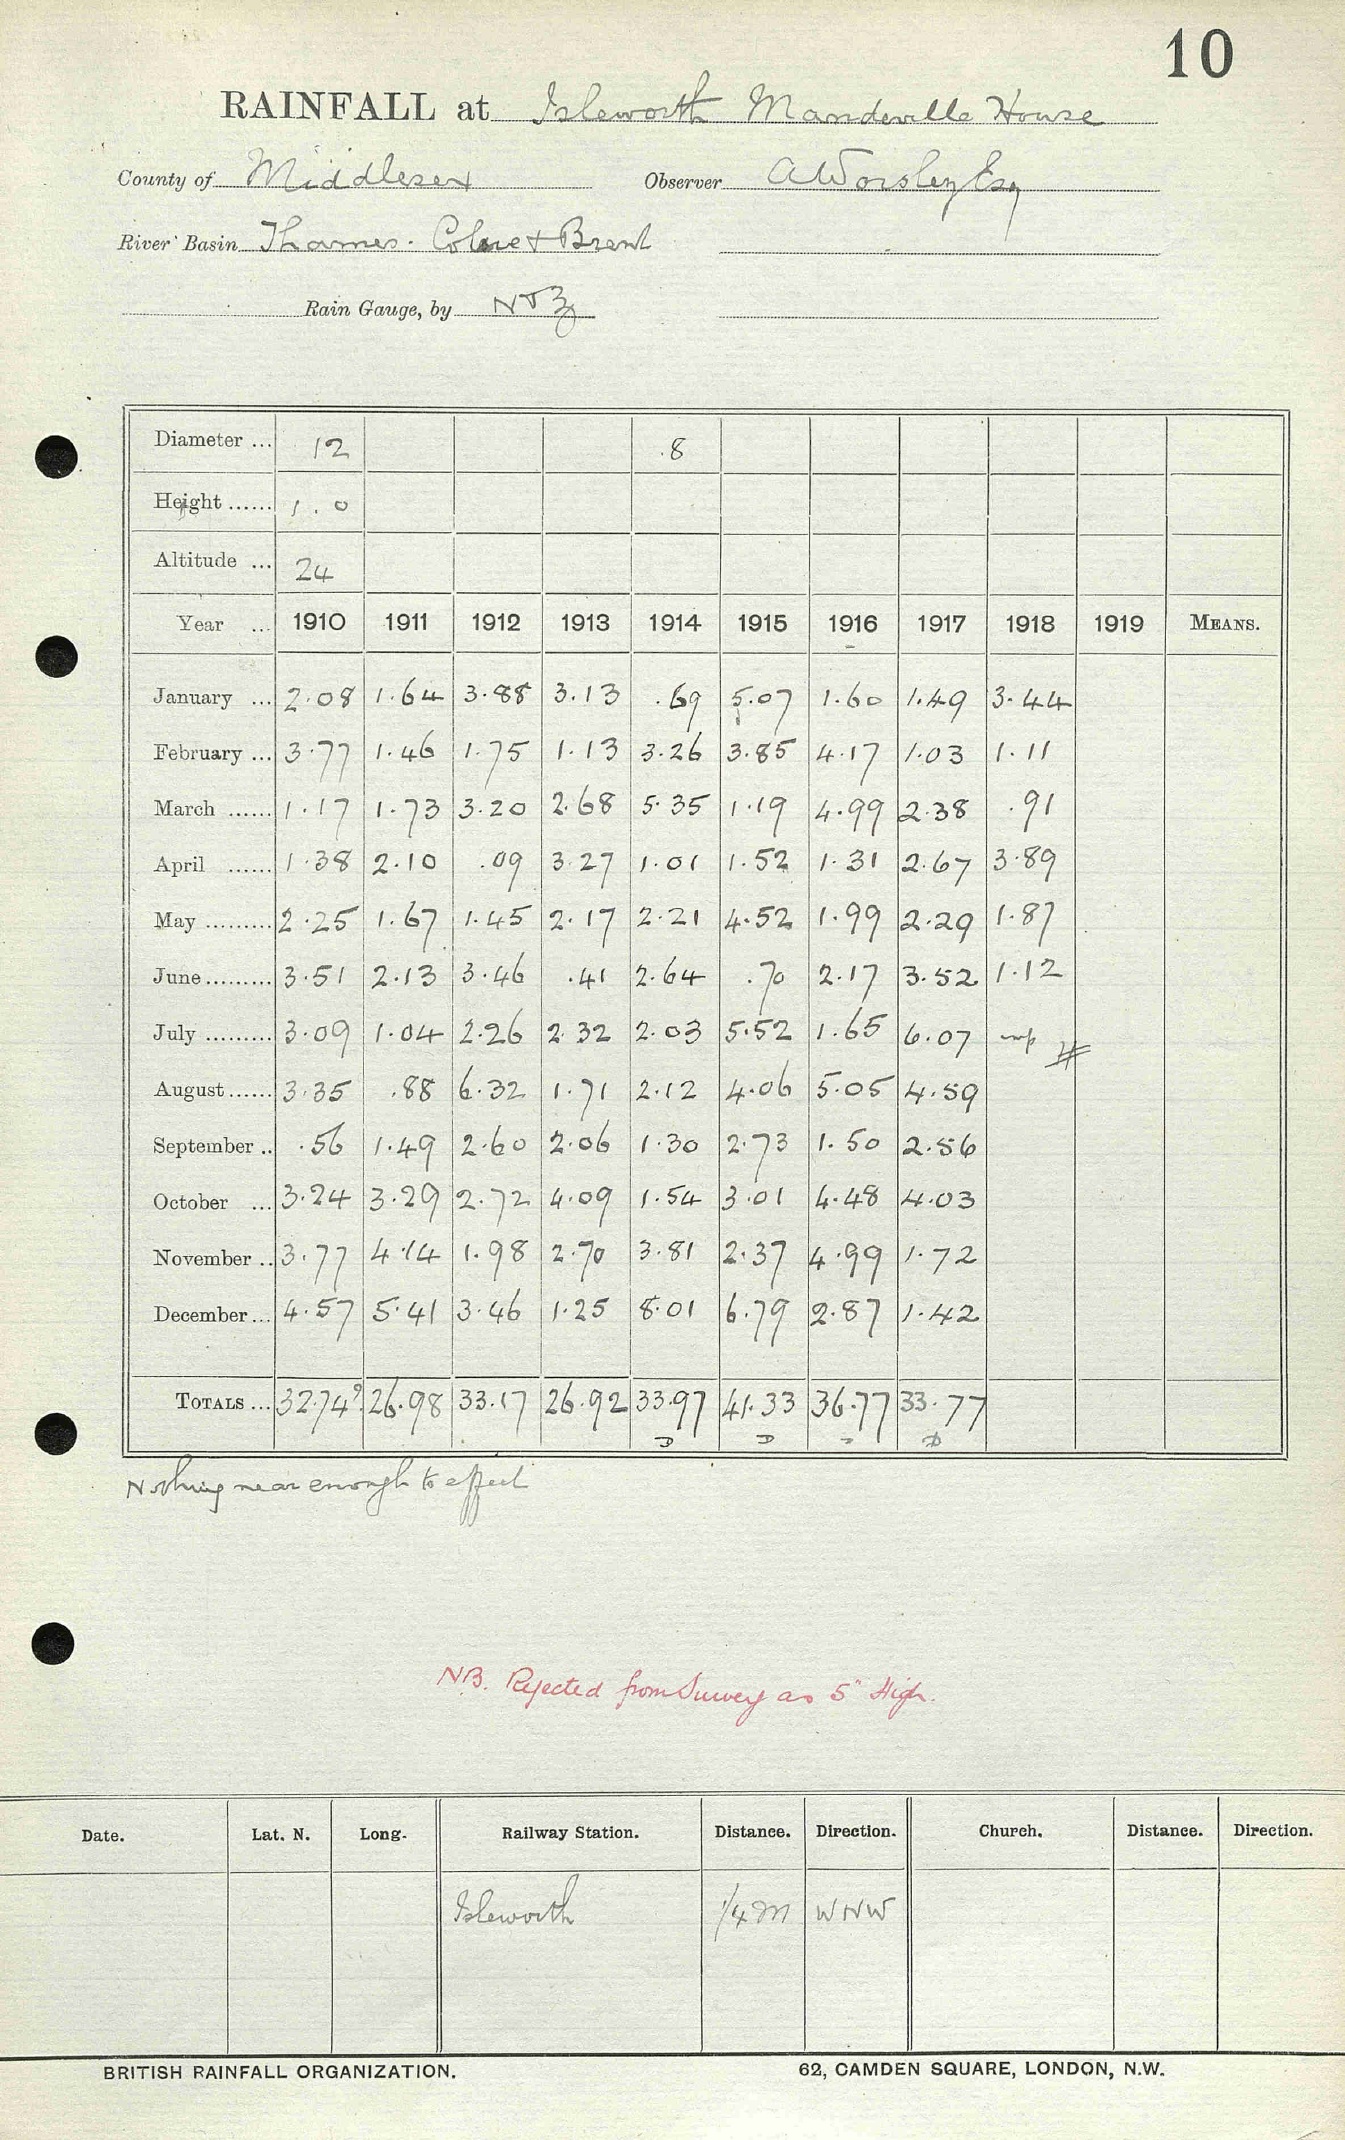 10
RAINFALL at Isleworth Mandeville House
County of Middlesex Observer A Worsley Esq
River Basin Thames. Colne & Brent
Rain Gauge, by N & Z
Diameter ... 12 8
Height ...... 1.0
Altitude ... 24
Year ... 1910 1911 1912 1913 1914 1915 1916 1917 1918 1919 MEANS.
January ... 2.08 1.64 3.88 3.13 .69 5.07 1.60 1.49 3.44
February ... 3.77 1.46 1.75 1.13 3.26 3.85 4.17 1.03 1.11
March ...... 1.17 1.73 3.20 2.68 5.35 1.19 4.99 2.38 .91
April ...... 1.38 2.10 .09 3.27 1.01 1.52 1.31 2.67 3.89
May ......... 2.25 1.67 1.45 2.17 2.21 4.52 1.99 2.29 1.87
June ......... 3.51 2.13 3.46 .41 2.64 .70 2.17 3.52 1.12
July ......... 3.09 1.04 2.26 2.32 2.03 5.52 1.65 6.07
August ...... 3.35 .88 6.32 1.71 2.12 4.06 5.05 4.59
September .. .56 1.49 2.60 2.06 1.30 2.73 1.50 2.56
October ... 3.24 3.29 2.72 4.09 1.54 3.01 4.48 4.03
November .. 3.77 4.14 1.98 2.70 3.81 2.37 4.99 1.72
December ... 4.57 5.41 3.46 1.25 8.01 6.79 2.87 1.42
TOTALS ... 32.74? 26.98 33.17 26.92 33.97 41.33 36.77 33.77
Nothing near enough to effect
NB. Rejected from Survey as 5" High.
Date. Lat. N. Long. Railway Station. Distance. Direction. Church. Distance. Direction.
Isleworth 1/4 m WNW
BRITISH RAINFALL ORGANIZATION. 62, CAMDEN SQUARE, LONDON, N.W.